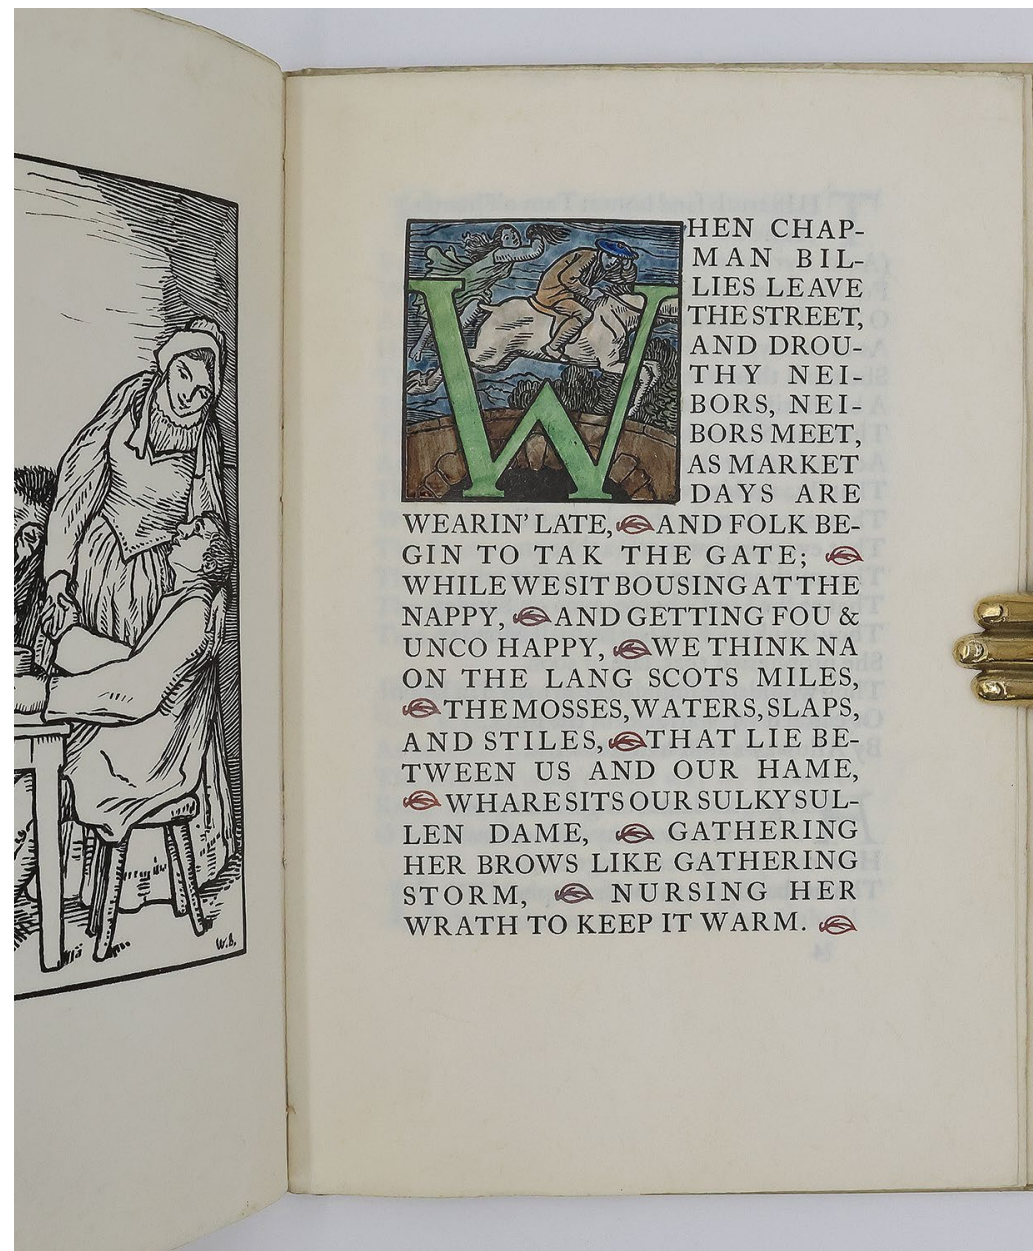 WHEN CHAP-
MAN BIL-
LIES LEAVE
THE STREET,
AND DROU-
THY NEI-
BORS, NEI-
BORS MEET,
AS MARKET
DAYS ARE
WEARIN' LATE, AND FOLK BE-
GIN TO TAK THE GATE;
WHILE WE SIT BOUSING AT THE
NAPPY, AND GETTING FOU &
UNCO HAPPY, WE THINK NA
ON THE LANG SCOTS MILES,
THE MOSSES, WATERS, SLAPS,
AND STILES, THAT LIE BE-
TWEEN US AND OUR HAME,
WHARE SITS OUR SULKY SUL-
LEN DAME, GATHERING
HER BROWS LIKE GATHERING
STORM, NURSING HER
WRATH TO KEEP IT WARM.
W.B.